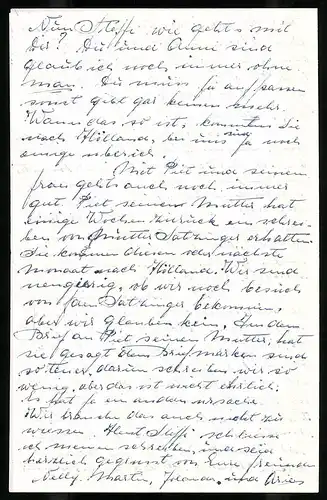 Nun Steffi wie geht's mit
Dir? Du und Anni sind
glaub ich noch immer ohne
man. Du muss ja aufpassen
sonst gibt gar keinen mehr.
Wann das so ist, kommten Sie
nach Hölland, bei uns sind ja noch
einige uberich.
Mit Piet und seinem
frau geht's auch noch immer
gut. Piet seinem Mutter hat
einige Wochen zurück ein schrei-
ben von Mutter Satzinger erhalten.
Sie kommen diesen oder nächste
Monaat nach Hölland. Wir sind
neugierig, ob wir noch besuch
von fam Satzinger bekommen,
aber wir glauben kein. In dem
Brief an Piet seinen Mutter, hat
sie gesagt dem Briefmarken sind
so teuer, darum schreiben wir so
wenig, aber das ist nicht ehrlich.
Es gibt ja ein andere ursache.
Wir brauche das auch nicht zu
wissen. Steffi schliesse
ich meinen schreiben, und seid
herzlich gegrusst von Eure freunden
Nelly, Martin, und Aries